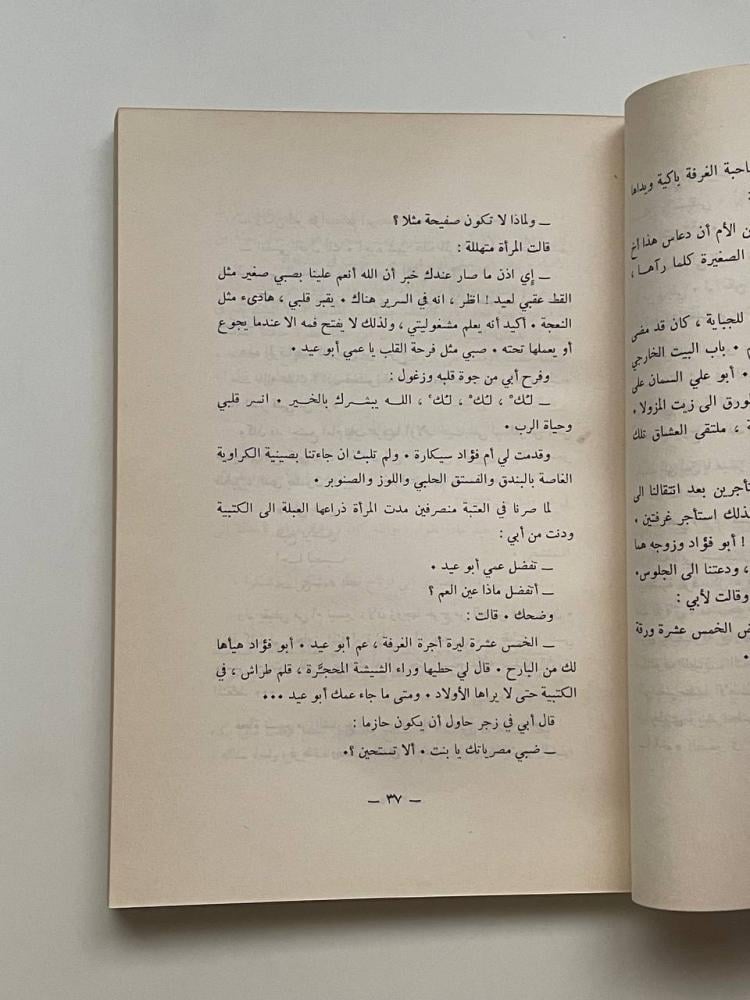 احبة الغرفة باكية ويداها
:
ن الأم أن دعاس هذا أخ
الصغيرة كلما رآها ،
للجباية ، كان قد مضى
م ٠ باب البيت الخارجي
٠ أبو علي السمان على
لورق الى زيت المزولا ٠
ة ، ملتقى العشاق تلك
تأجرين بعد انتقالنا الى
ذلك استأجر غرفتين ٠
! أبو فؤاد وزوجه هما
، ودعتنا الى الجلوس٠
وقالت لأبي :
ض الخمس عشرة ورقة
٠
ــ ولماذا لا تكون صفيحة مثلا ؟
قالت المرأة متهللة :
ــ إي اذن ما صار عندك خبر أن الله أنعم علينا بصبي صغير مثل
القط عقبي لعيد ! انظر ، انه في السرير هناك ٠ يقبر قلبي ، هادىء مثل
النعجة ٠ أكيد أنه يعلم مشغوليتي ، ولذلك لا يفتح فمه الا عندما يجوع
أو يعملها تحته ٠ صبي مثل فرحة القلب يا عمي أبو عيد ٠
وفرح أبي من جوة قلبه وزغول :
ــ لكْ ، لكْ ، لكْ ، الله يبشرك بالخير ٠ انسر قلبي
وحياة الرب ٠
وقدمت لي أم فؤاد سيكارة ٠ ولم تلبث ان جاءتنا بصينية الكراوية
الغاصة بالبندق والفستق الحلبي واللوز والصنوبر ٠
لما صرنا في العتبة منصرفين مدت المرأة ذراعها العبلة الى الكتبية
ودنت من أبي :
ــ تفضل عمي أبو عيد ٠
ــ أتفضل ماذا عين العم ؟
وضحك ٠ قالت :
ــ الخمس عشرة ليرة أجرة الغرفة ، عم أبو عيد ٠ أبو فؤاد هيأها
لك من البارح ٠ قال لي حطيها وراء الشيشة المحجَّرة ، قلم طراش ، في
الكتبية حتى لا يراها الأولاد ٠ ومتى ما جاء عمك أبو عيد ٠٠٠
قال أبي في زجر حاول أن يكون حازما :
ــ ضبي مصرياتك يا بنت ٠ ألا تستحين ؟٠
ــ ٣٧ ــ